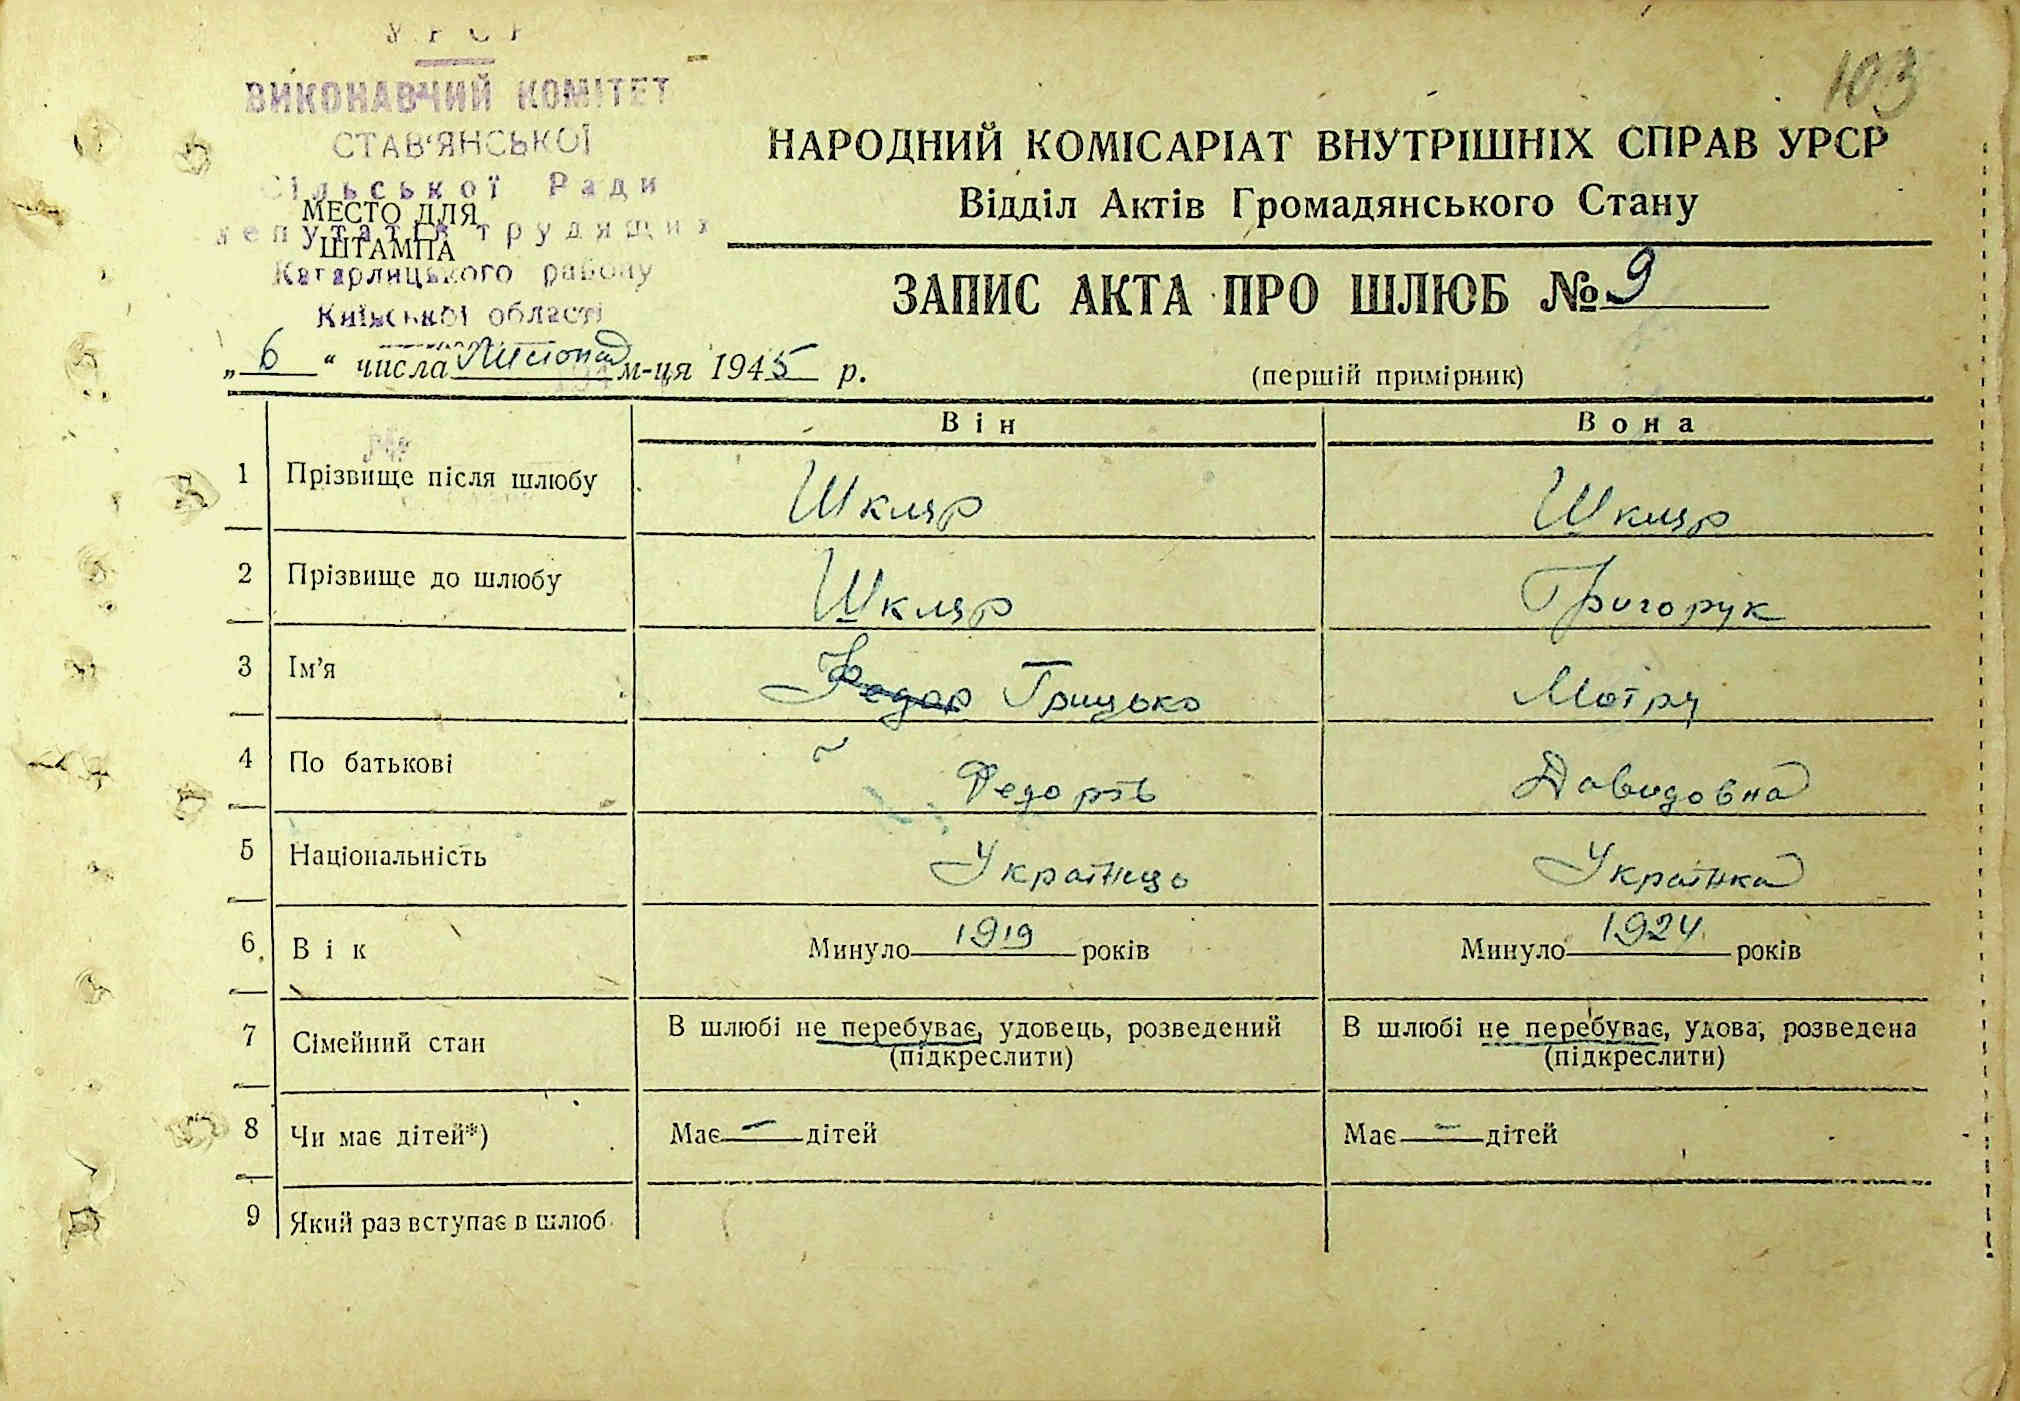 УРСР
ВИКОНАВЧИЙ КОМІТЕТ
СТАВ'ЯНСЬКОЇ
Сільської Ради
депутатів трудящих
Кагарлицького району
Київської області
МЕСТО ДЛЯ
ШТАМПА
103
НАРОДНИЙ КОМІСАРІАТ ВНУТРІШНІХ СПРАВ УРСР
Відділ Актів Громадянського Стану
ЗАПИС АКТА ПРО ШЛЮБ № 9
„ 6 “ числа Листопад м-ця 1945 р.
(першій примірник)
Він Вона
1 Прізвище після шлюбу Шкляр Шкляр
2 Прізвище до шлюбу Шкляр Григорук
3 Ім'я Федор Грицько Мотря
4 По батькові Федорів Давидовна
5 Національність Українць Українка
6 Вік Минуло 1919 років Минуло 1924 років
7 Сімейний стан В шлюбі не перебуває, удовець, розведений В шлюбі не перебуває, удова, розведена
(підкреслити) (підкреслити)
8 Чи має дітей*) Має – дітей Має – дітей
9 Який раз вступає в шлюб